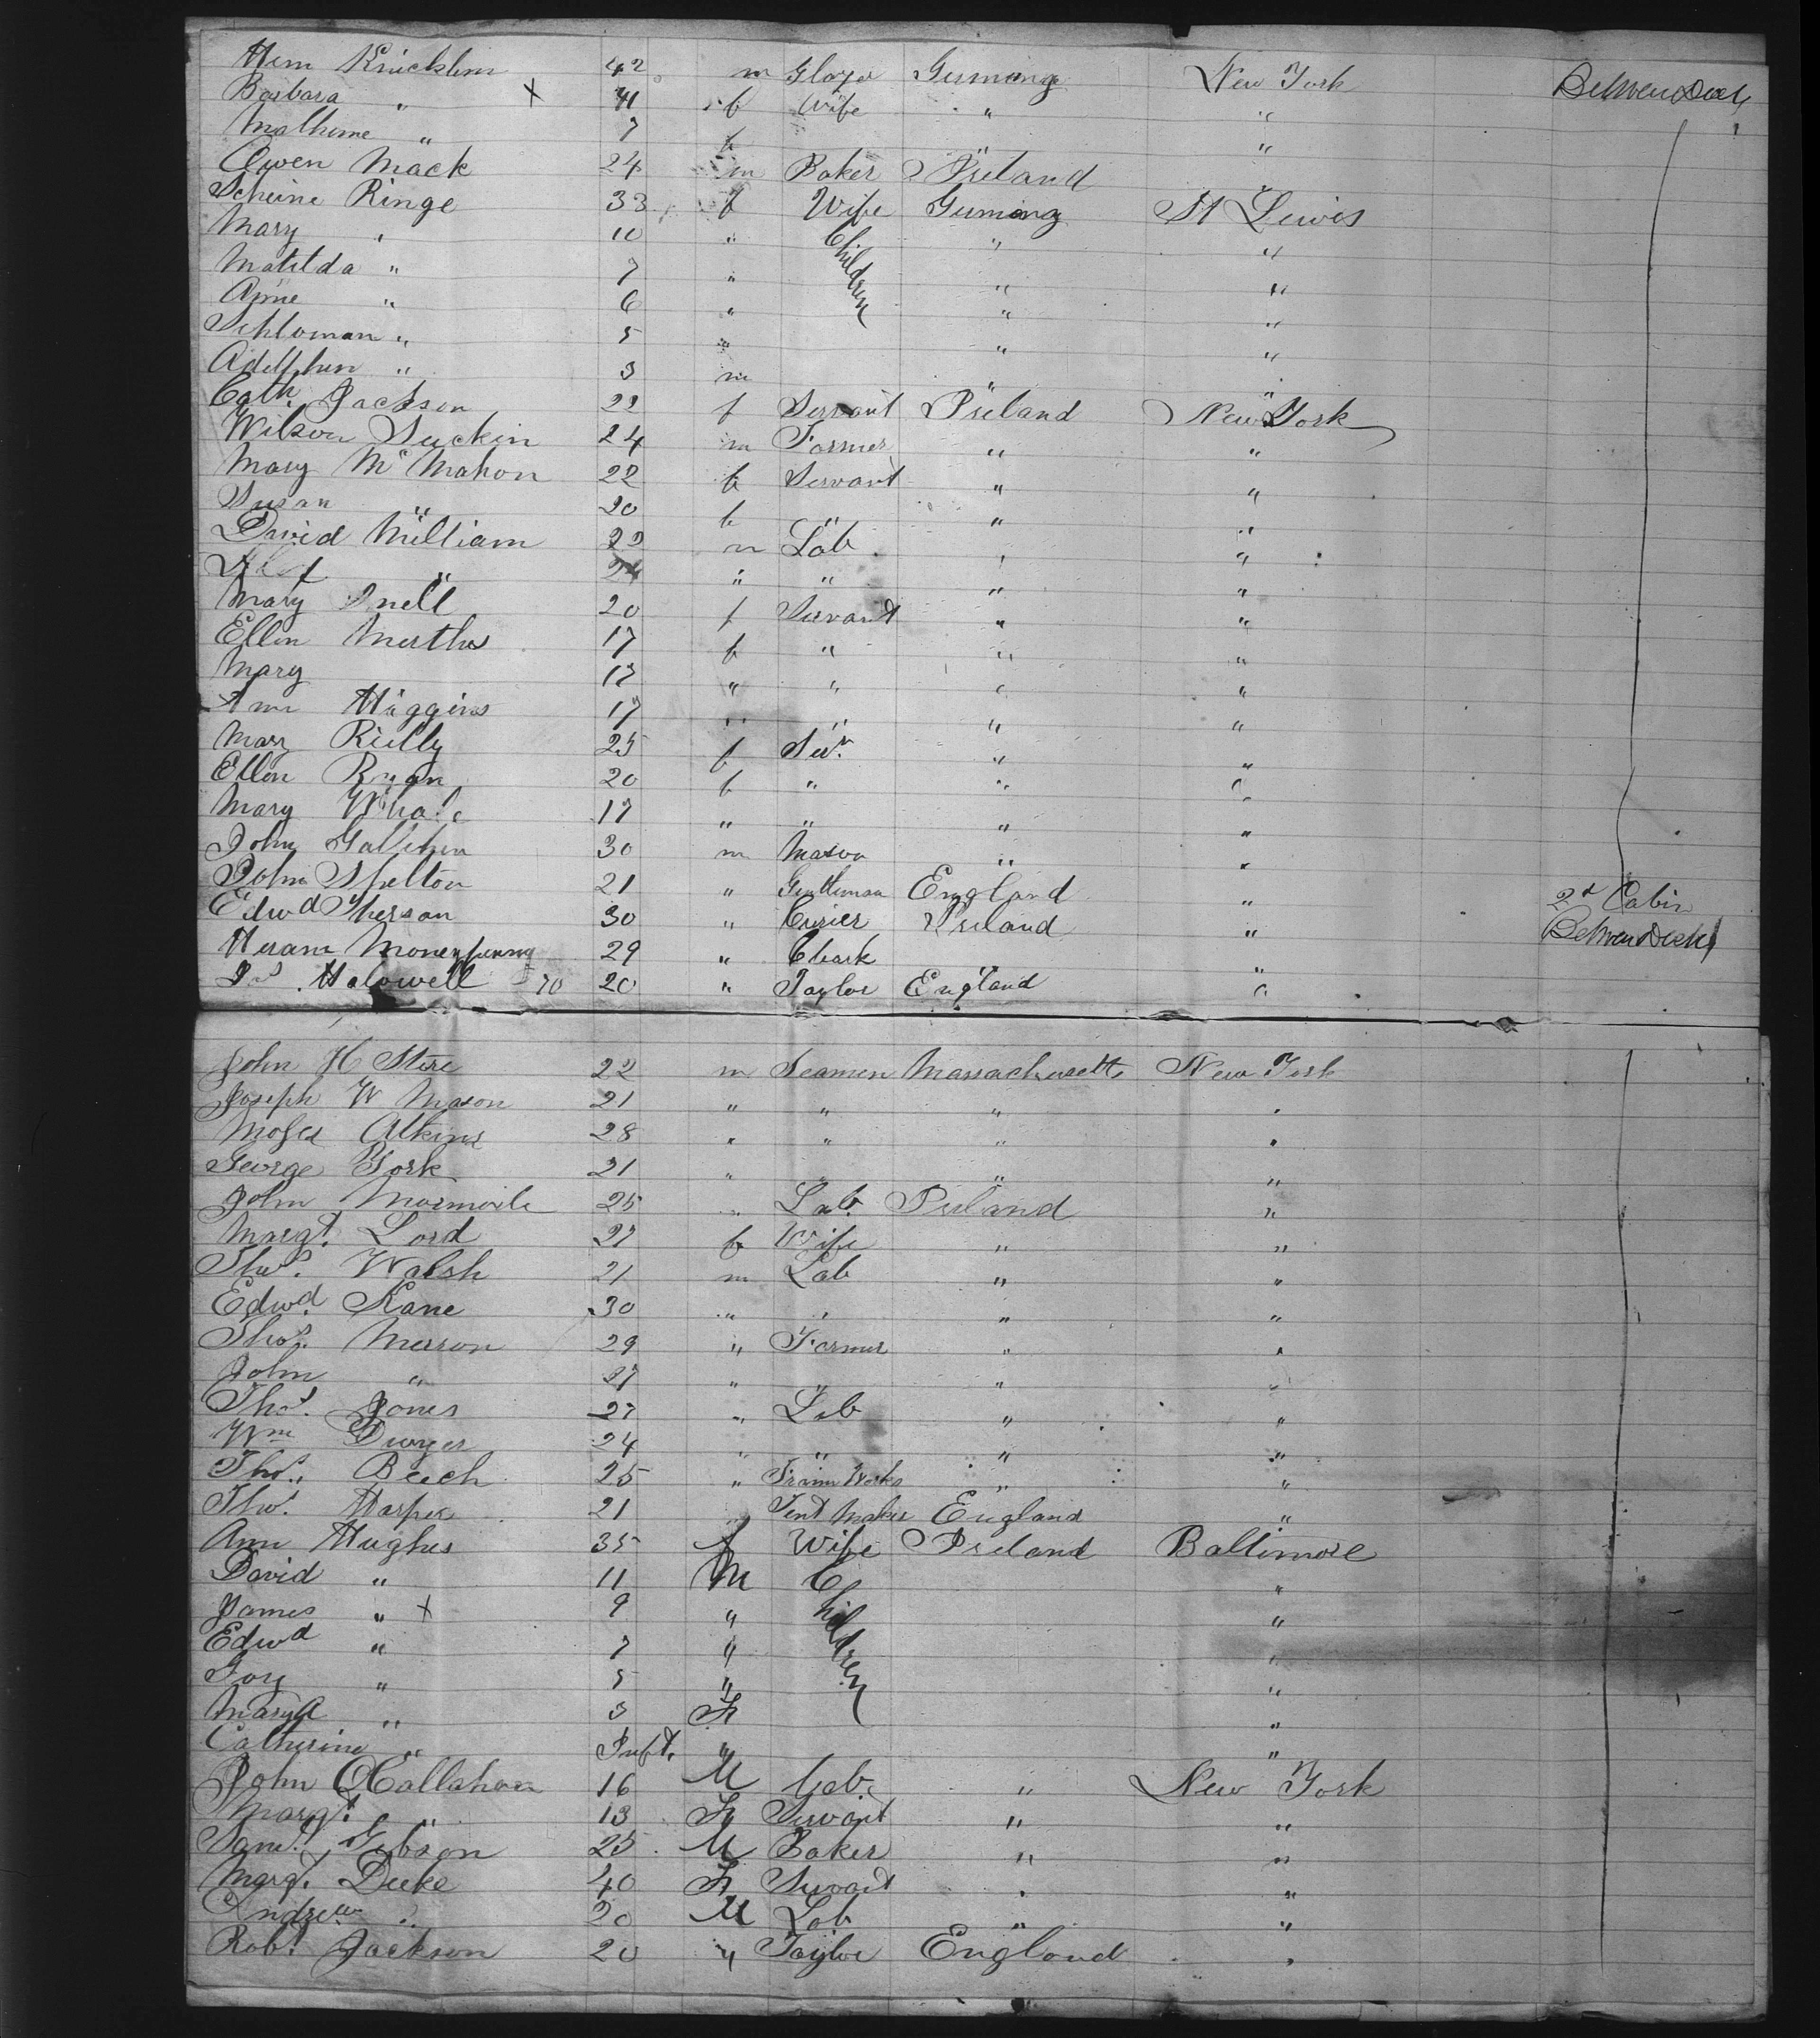 Hern 42 m Glazr Germany New York Between Decks
Barbara " X 41 f Wife " "
" 7 f " "
Owen Mack 24 m Baker Ireland "
Ringe 33 f Wife Germany St Lewis
Mary " 10 " Children " "
Matilda " 7 " " "
Anne " 6 " " "
Schloman " 5 " " "
" 3 m " "
Cath. Jackson 22 f Servant Ireland New York
Wilson 24 m Farmer " "
Mary McMahon 22 f Servant " "
Susan " 20 f " " "
David William 22 m Lab " "
" 24 " " " "
Mary 20 f Servant " "
Ellen 17 f " " "
Mary 17 " " " "
Ann Higgins 17 " " " "
Mary Reilly 25 f Serv. " "
Ellen 20 f " " "
Mary 17 " " " "
John 30 m Mason " "
John Shelton 21 " Gentleman England " 2d Cabin
Edwd 30 " Ireland " Between Decks
Heram Moneypenny 29 " Clark " "
Halowell 70 20 " Taylor England "
John H 22 m Seamen Massachusetts New York
Joseph W Mason 21 " " " "
Moses Atkins 28 " " " "
George York 21 " " " "
John 25 " Lab. Ireland "
Margt. Lord 27 f Wife " "
Thos. Walsh 21 m Lab " "
Edwd. Kane 30 " " " "
Thos. Merron 29 " Farmer " "
John " 27 " " " "
Thos. Jones 27 " Lab " "
Wm Dwyer 24 " " " "
Thos. Beech 25 " " "
Thos. Harper 21 " Tent Maker England "
Ann Hughes 35 f Wife Ireland Baltimore
David " 11 M Children "
James " X 9 " "
Edwd " 7 " "
" 5 " "
Mary A " 3 F "
Catherine " Inft. " "
John OCallahan 16 M Lab. " New York
Margt. " 13 F Servant " "
Saml. Gibson 25 M Baker " "
Margt. Duke 40 F Servant " "
Andrew " 20 M Lab " "
Robt. Jackson 20 " Taylor England "